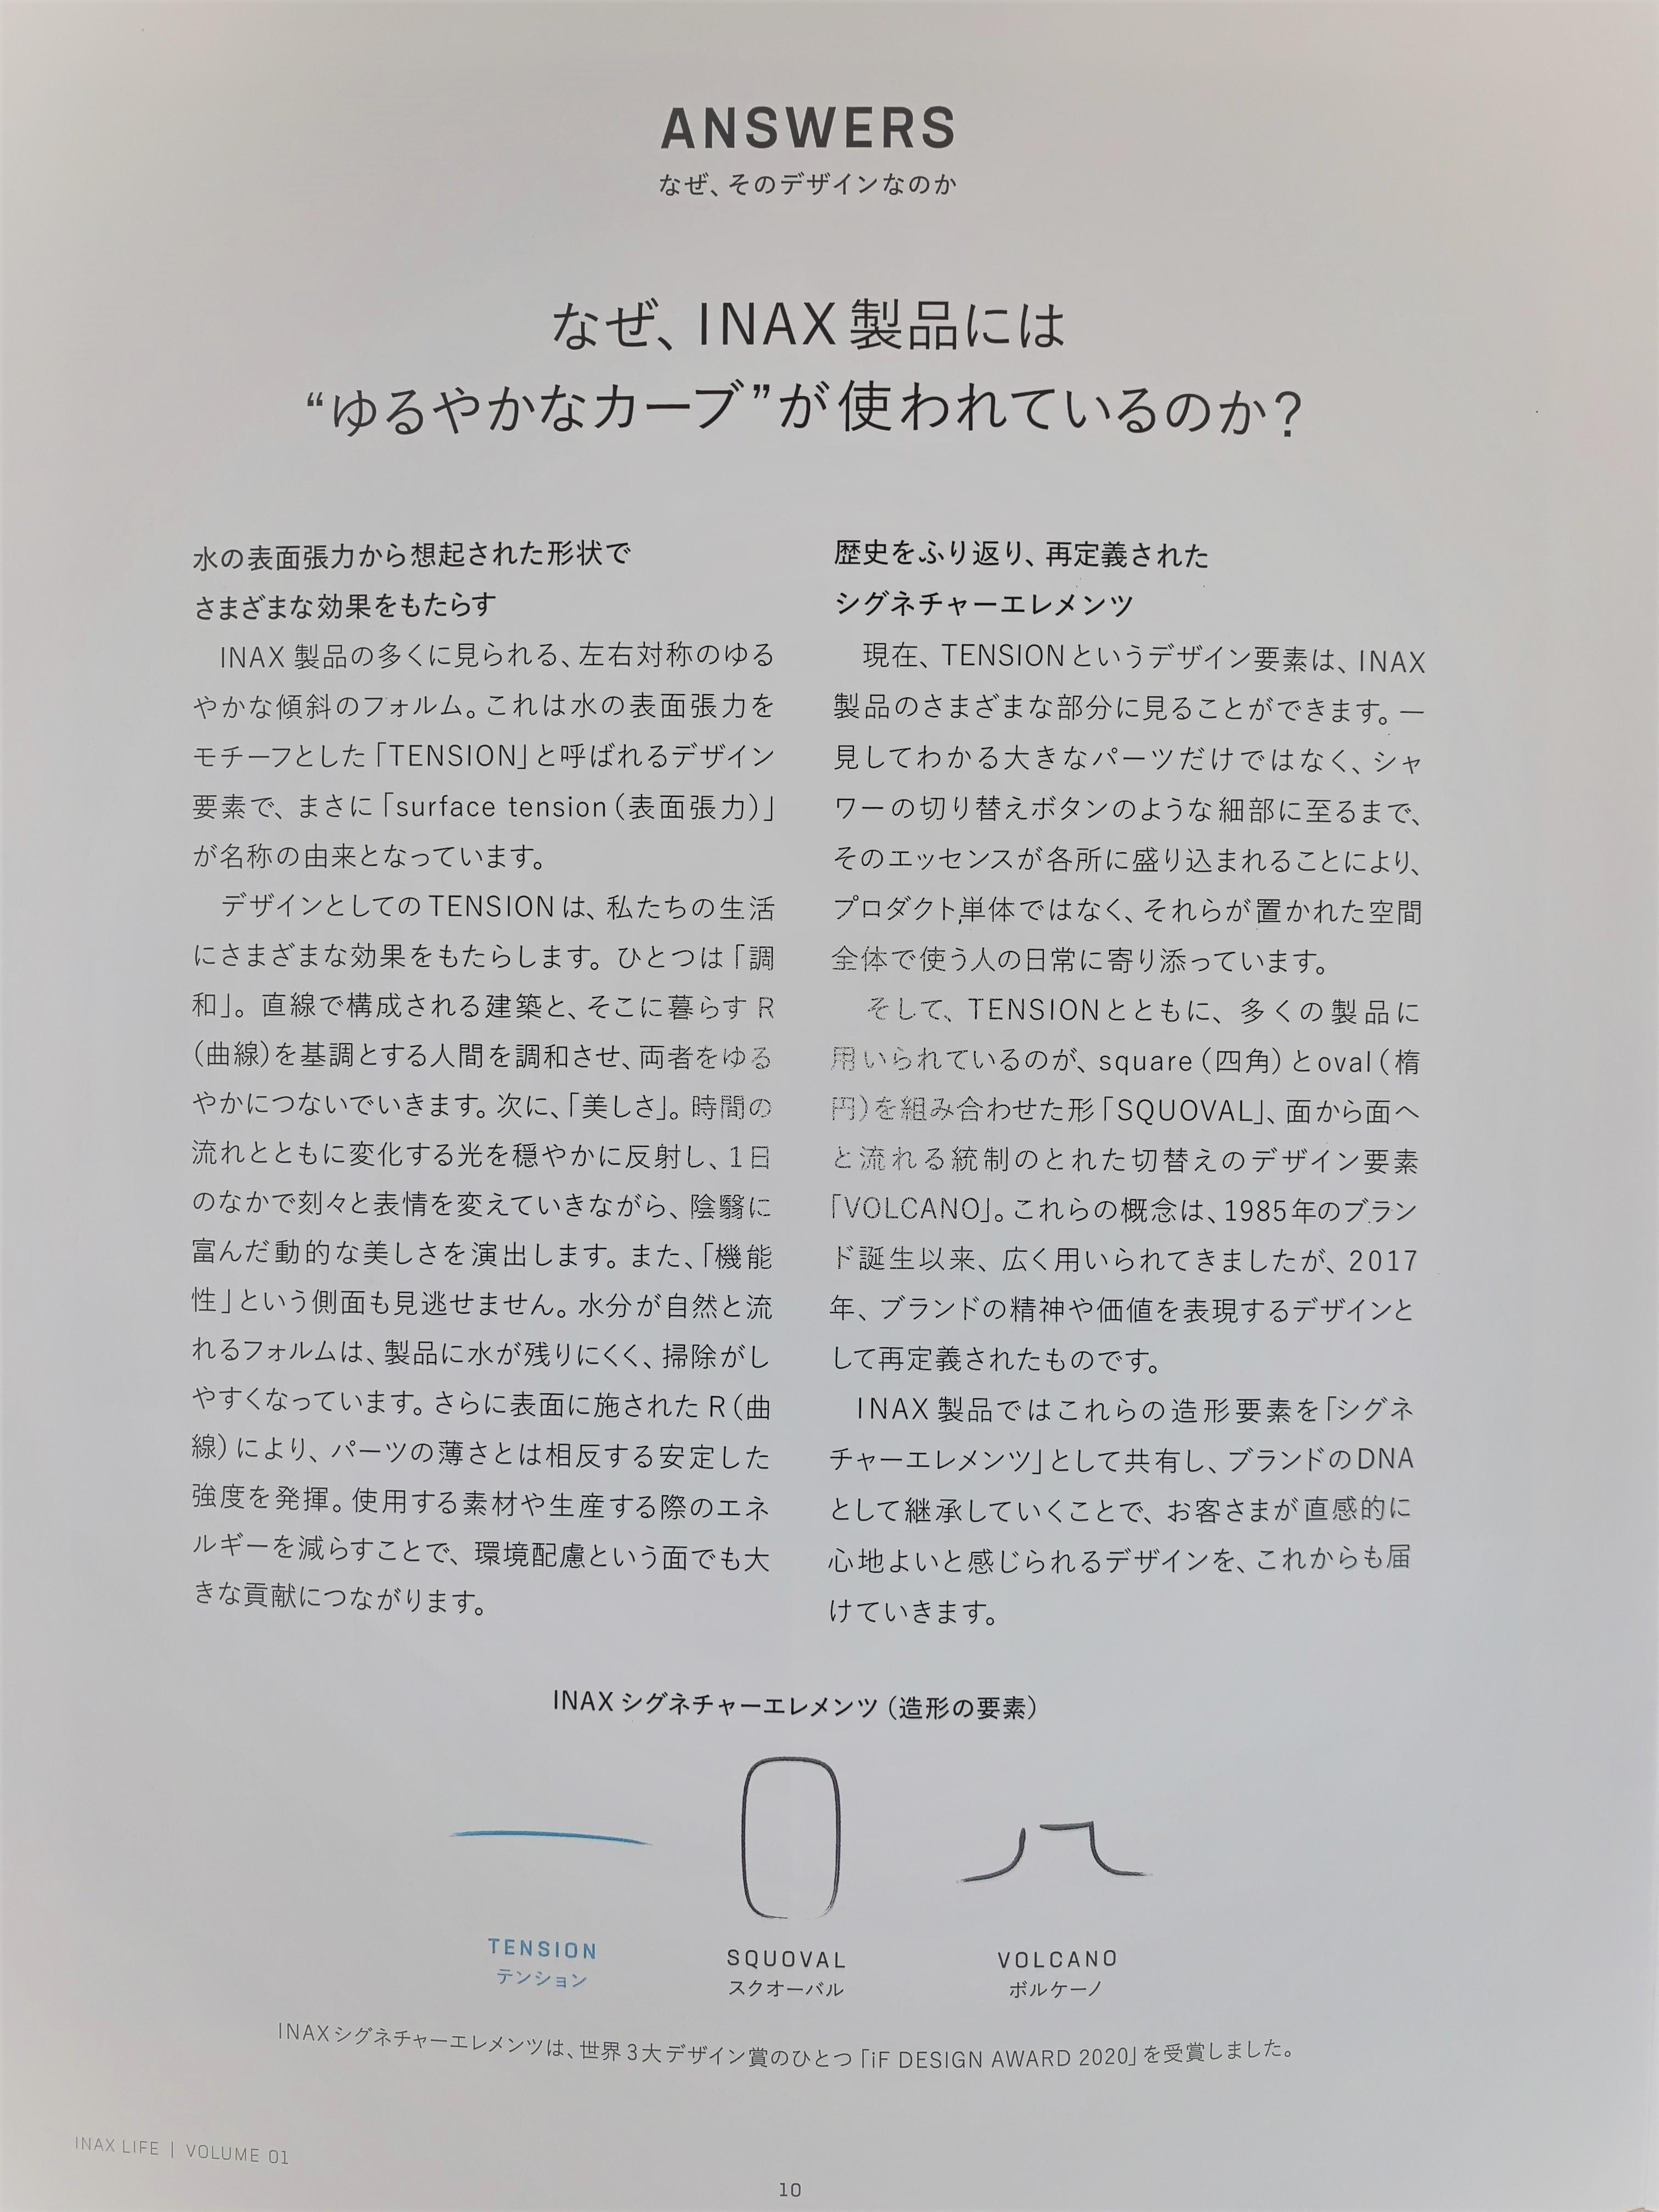 ANSWERS
なぜ、そのデザインなのか
なぜ、INAX製品には
“ゆるやかなカーブ”が使われているのか？
水の表面張力から想起された形状で
さまざまな効果をもたらす
INAX 製品の多くに見られる、左右対称のゆる
やかな傾斜のフォルム。これは水の表面張力を
モチーフとした「TENSION」と呼ばれるデザイン
要素で、まさに「surface tension（表面張力）」
が名称の由来となっています。
デザインとしてのTENSIONは、私たちの生活
にさまざまな効果をもたらします。ひとつは「調
和」。直線で構成される建築と、そこに暮らす R
（曲線）を基調とする人間を調和させ、両者をゆる
やかにつないでいきます。次に、「美しさ」。時間の
流れとともに変化する光を穏やかに反射し、1日
のなかで刻々と表情を変えていきながら、陰翳に
富んだ動的な美しさを演出します。また、「機能
性」という側面も見逃せません。水分が自然と流
れるフォルムは、製品に水が残りにくく、掃除がし
やすくなっています。さらに表面に施された R（曲
線）により、パーツの薄さとは相反する安定した
強度を発揮。使用する素材や生産する際のエネ
ルギーを減らすことで、環境配慮という面でも大
きな貢献につながります。
歴史をふり返り、再定義された
シグネチャーエレメンツ
現在、TENSIONというデザイン要素は、INAX
製品のさまざまな部分に見ることができます。一
見してわかる大きなパーツだけではなく、シャ
ワーの切り替えボタンのような細部に至るまで、
そのエッセンスが各所に盛り込まれることにより、
プロダクト単体ではなく、それらが置かれた空間
全体で使う人の日常に寄り添っています。
そして、TENSIONとともに、多くの製品に
用いられているのが、square（四角）とoval（楕
円）を組み合わせた形「SQUOVAL」、面から面へ
と流れる統制のとれた切替えのデザイン要素
「VOLCANO」。これらの概念は、1985年のブラン
ド誕生以来、広く用いられてきましたが、2017
年、ブランドの精神や価値を表現するデザインと
して再定義されたものです。
INAX 製品ではこれらの造形要素を「シグネ
チャーエレメンツ」として共有し、ブランドのDNA
として継承していくことで、お客さまが直感的に
心地よいと感じられるデザインを、これからも届
けていきます。
INAX シグネチャーエレメンツ（造形の要素）
TENSION
テンション
SQUOVAL
スクオーバル
VOLCANO
ボルケーノ
INAXシグネチャーエレメンツは、世界3大デザイン賞のひとつ「iF DESIGN AWARD 2020」を受賞しました。
INAX LIFE | VOLUME 01
10